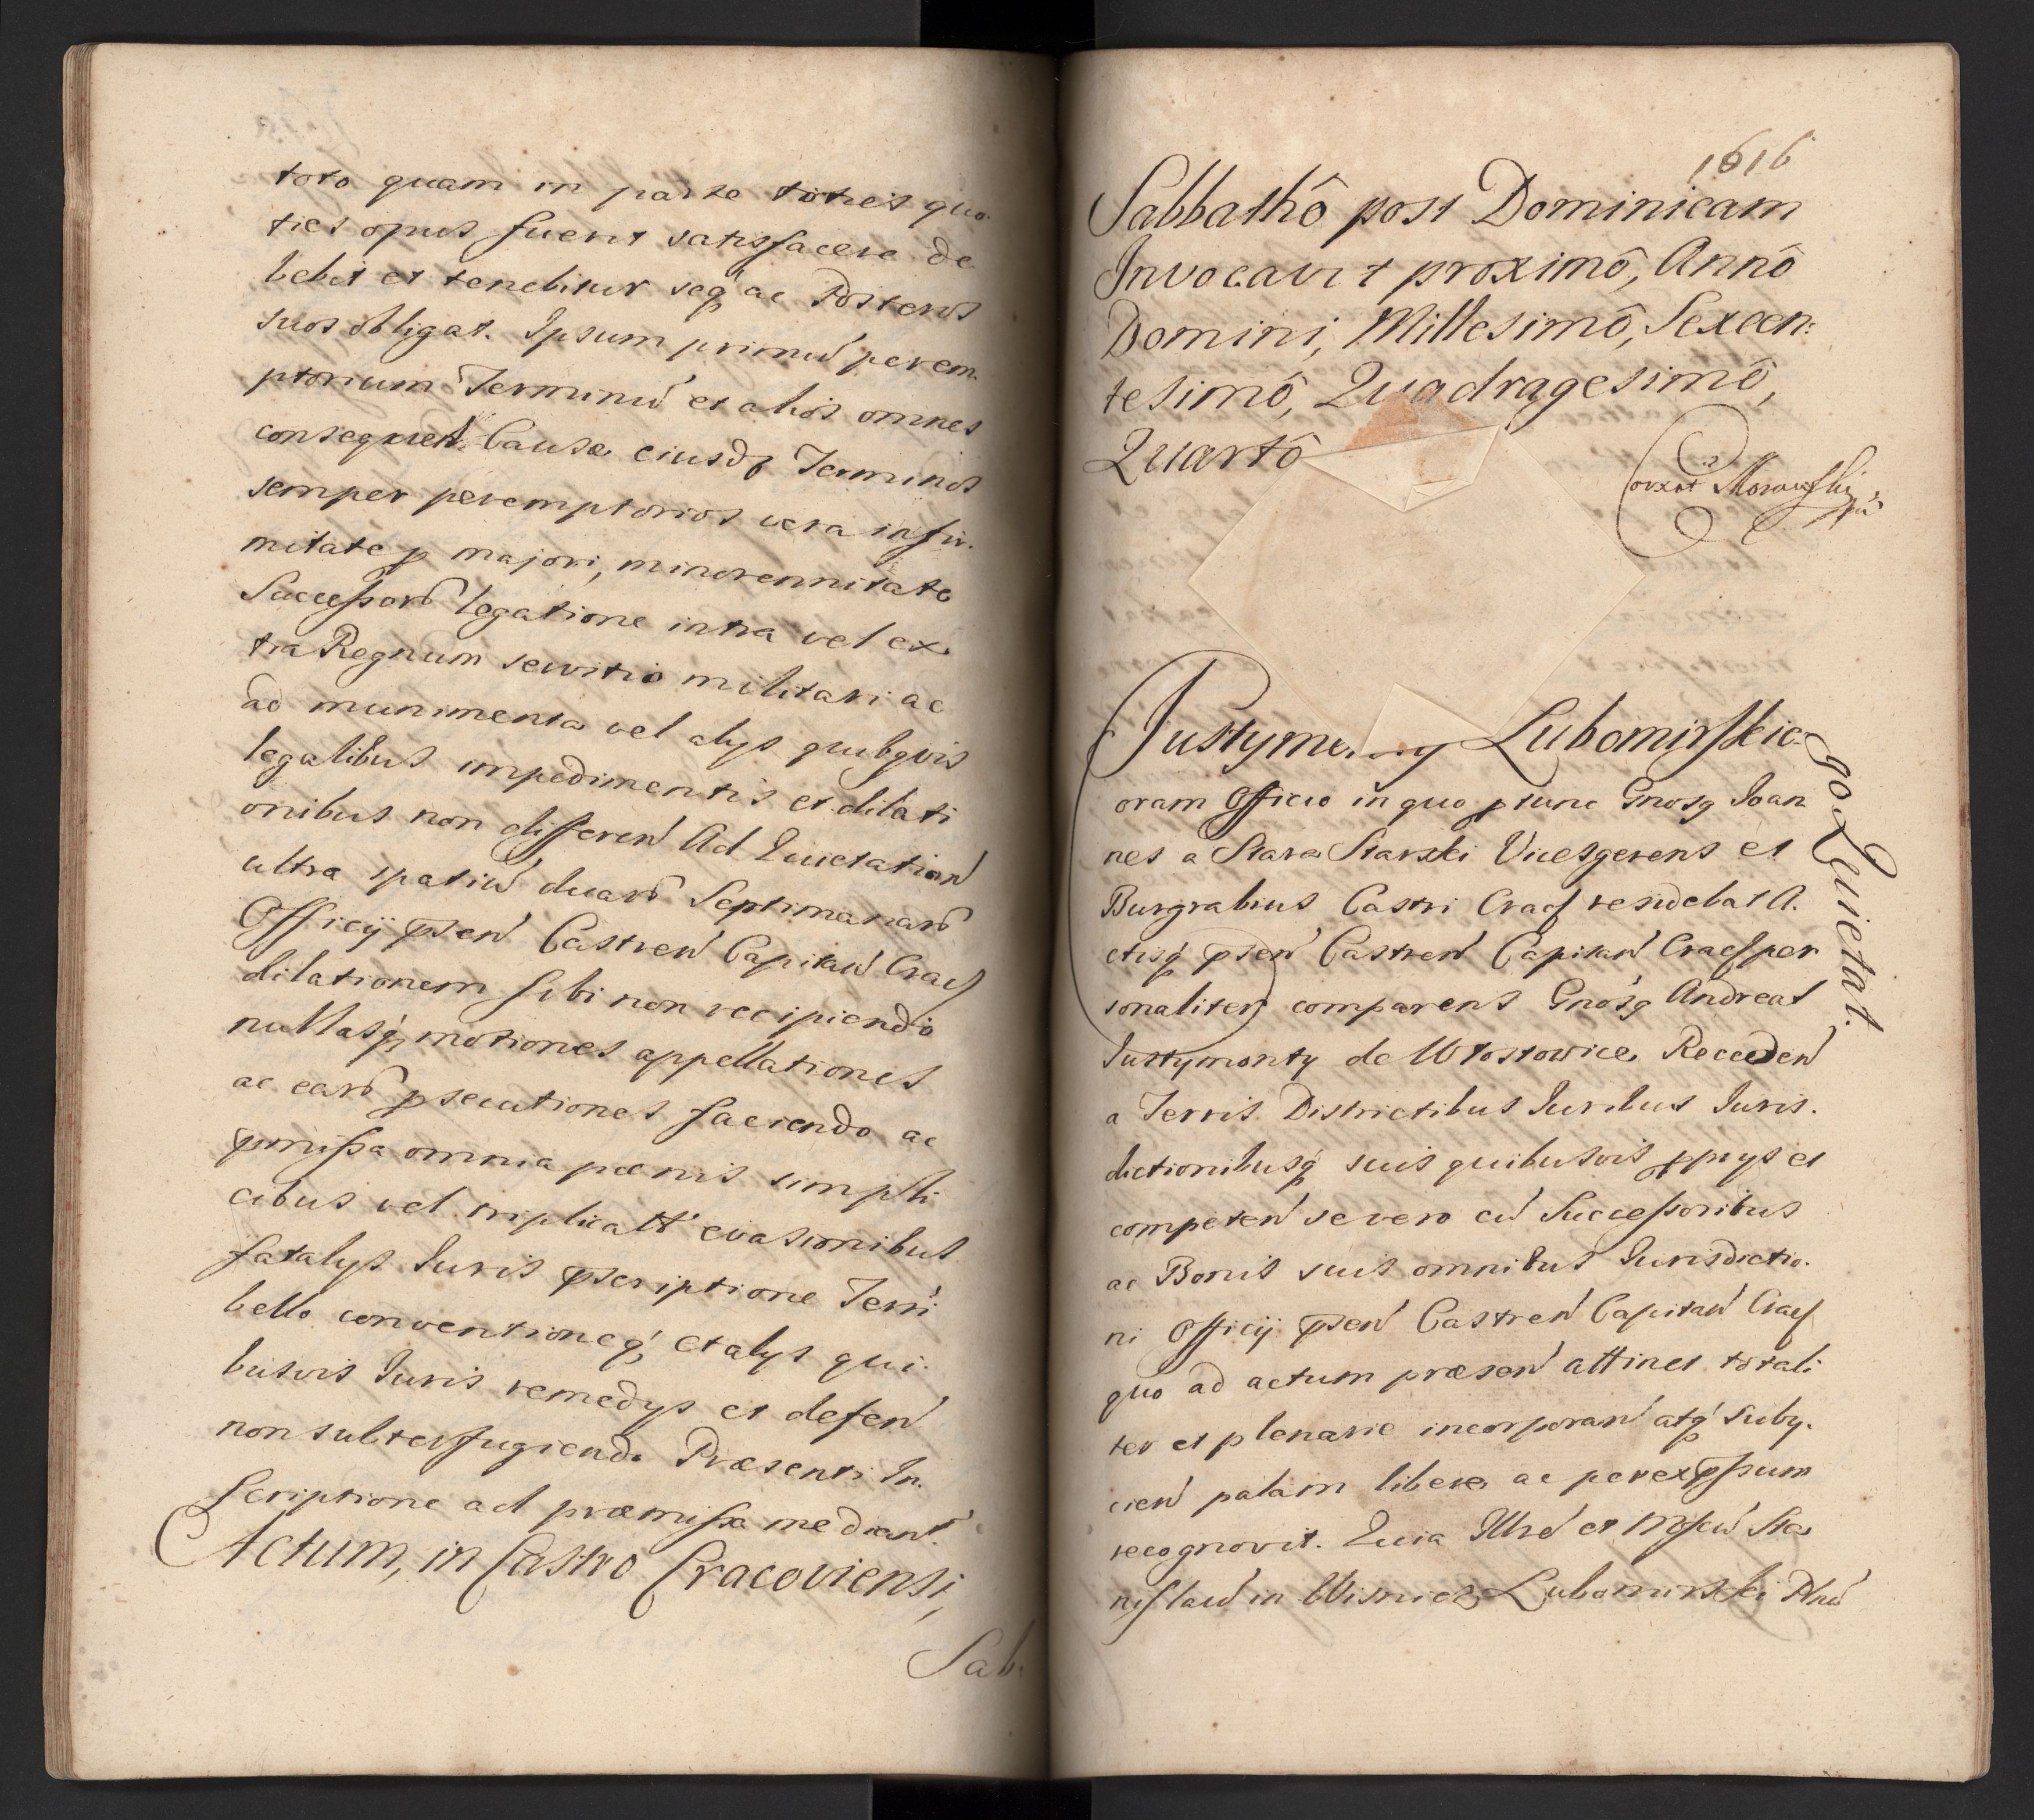 toto quam in parte toties quo
ties opus fuerit satisfacere de
bebit et tenebitur seq ac Posteros
suos obligat. Ipsum primu perem
ptorium Terminu et alios omnes
consequen Causæ eiusd Terminos
semper peremptorios vera infir.
mitate p majori, minorennitate
Successor legatione intra vel ex
tra Regnum servitio militari ac
ad munimenta vel alys quibqvis
legalibus impedimentis et dilati
onibus non differen Ad Quietation
ultra spatiu duar Septimanar
Officij psen Castren Capitan Crac
dilationem sibi non recipiendo
nullasq motiones appellationes
ac ear psecutiones faciendo ac
pmissa omnia pœnis simpli
cibus vel triplicatt evasionibus
fatalys Iuris pscriptione Terri
bello conventioneq, et alys qui
busvis Iuris remedys et defen
non subterfugiendo Præsenti In.
scriptione ad præmissa mediant.
Actum, in Castro Cracoviensi,
Sab
1616
Sabbathô post Dominicam
Invocavit proximô, Annô
Domini, Millesimô, Sexcen:
tesimô, Quadragesimô,
Quartô
Morawski
Iustymo Lubomirskie
go Quietat.
oram Officio in quo p tunc Gnosq Ioan
nes a Stara Starski Vicesgerens et
Burgrabius Castri Crac residebat A.
ctisq psen Castren Capitan Crac per
sonaliter comparens Gnosq Andreas
Iustymonty de Wtostowice Recceden
a Terris Districtibus Iuribus Iuris.
dictionibusq suis quibusvis pprys et
competen se vero cu Successoribus
ac Bonis suis omnibus Iurisdictio.
ni Officij psen Castren Capitan Crac
quo ad actum præsen attinet totali
ter et plenarie incorporan atq suby.
cien palam libere ac per expssum
recognovit. Quia Illre et Mfcu Sta
nislau in Wisnicz Lubomirski Pln